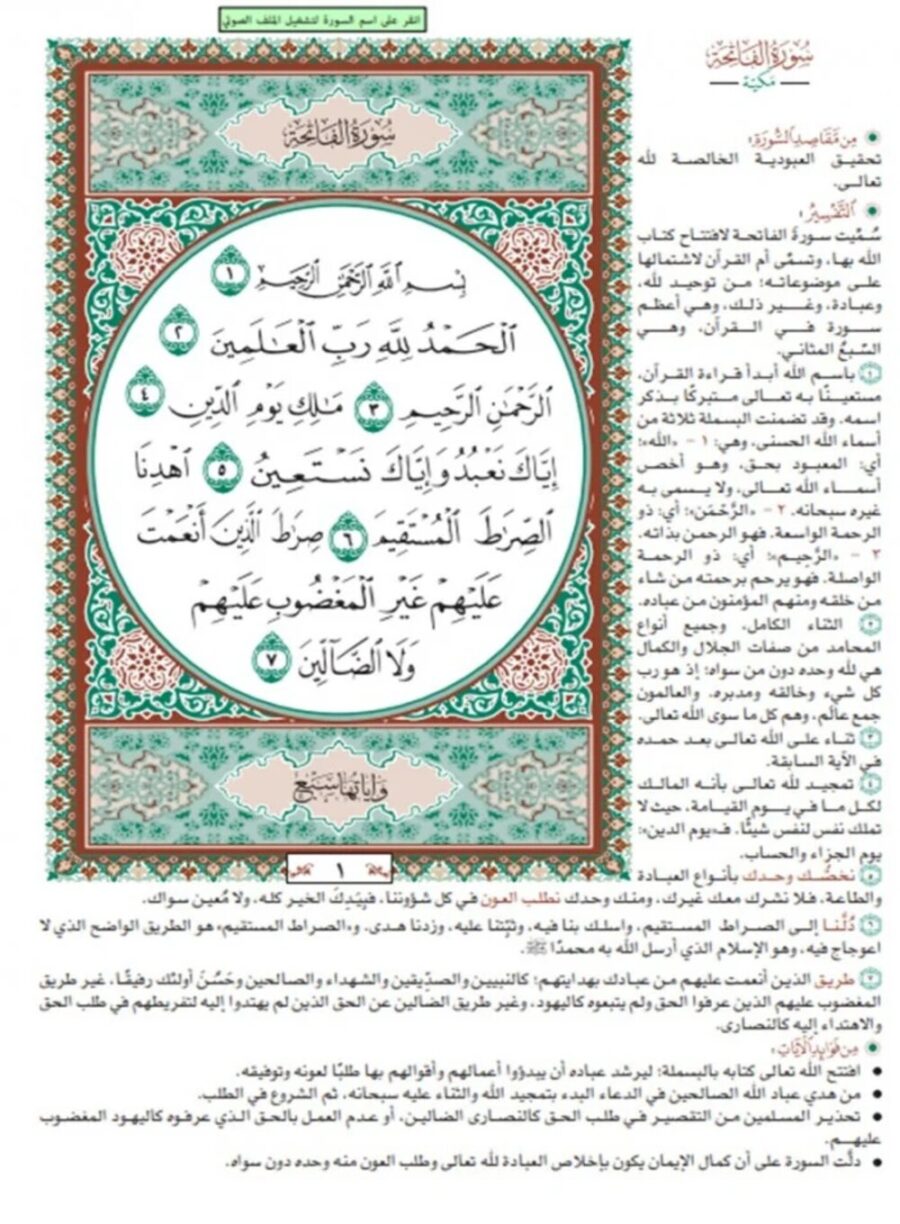 انقر على اسم السورة لتشغيل الملف الصوتي
سُورَةُ الفَاتِحَةِ
مَكيّة
سُورَةُ الفَاتِحَةِ
بِسْمِ اللَّهِ الرَّحْمَٰنِ الرَّحِيمِ ١
الْحَمْدُ لِلَّهِ رَبِّ الْعَالَمِينَ ٢
الرَّحْمَٰنِ الرَّحِيمِ ٣ مَالِكِ يَوْمِ الدِّينِ ٤
إِيَّاكَ نَعْبُدُ وَإِيَّاكَ نَسْتَعِينُ ٥ اهْدِنَا
الصِّرَاطَ الْمُسْتَقِيمَ ٦ صِرَاطَ الَّذِينَ أَنْعَمْتَ
عَلَيْهِمْ غَيْرِ الْمَغْضُوبِ عَلَيْهِمْ
وَلَا الضَّالِّينَ ٧
وَآيَاتُهَا سَبْعٌ
١
مِن مَّقَاصِدِ السُّورَةِ:
تحقيق العبودية الخالصة لله
تعالى.
التَّفْسِيرُ:
سُمِّيت سورة الفاتحة لافتتاح كتاب
الله بها، وتسمَّى أم القرآن لاشتمالها
على موضوعاته؛ من توحيد لله،
وعبادة، وغير ذلك، وهي أعظم
سورة في القرآن، وهي
السَّبعُ المثاني.
١ باسم الله أبدأ قراءة القرآن،
مستعينًا به تعالى متبركًا بذكر
اسمه. وقد تضمنت البسملة ثلاثة من
أسماء الله الحسنى، وهي: ١ - «الله»؛
أي: المعبود بحق، وهو أخص
أسماء الله تعالى، ولا يسمى به
غيره سبحانه. ٢ - «الرَّحْمَن»؛ أي: ذو
الرحمة الواسعة. فهو الرحمن بذاته.
٣ - «الرَّحِيم»؛ أي: ذو الرحمة
الواصلة. فهو يرحم برحمته من شاء
من خلقه ومنهم المؤمنون من عباده.
٢ الثناء الكامل، وجميع أنواع
المحامد من صفات الجلال والكمال
هي لله وحده دون من سواه؛ إذ هو رب
كل شيء وخالقه ومدبره. والعالمون
جمع عالَم، وهم كل ما سوى الله تعالى.
٣ ثناء على الله تعالى بعد حمده
في الآية السابقة.
٤ تمجيد لله تعالى بأنه المالك
لكل ما في يوم القيامة، حيث لا
تملك نفس لنفس شيئًا. فـ«يوم الدين»:
يوم الجزاء والحساب.
٥ نخصُّك وحدك بأنواع العبادة
والطاعة، فلا نشرك معك غيرك، ومنك وحدك نطلب العون في كل شؤوننا، فبِيَدِكَ الخير كله، ولا مُعين سواك.
٦ دُلَّنا إلى الصراط المستقيم، واسلك بنا فيه، وثبِّتنا عليه، وزدنا هدى. و«الصراط المستقيم» هو الطريق الواضح الذي لا
اعوجاج فيه، وهو الإسلام الذي أرسل الله به محمدًا ﷺ.
٧ طريق الذين أنعمت عليهم من عبادك بهدايتهم؛ كالنبيين والصدِّيقين والشهداء والصالحين وحَسُنَ أولئك رفيقًا، غير طريق
المغضوب عليهم الذين عرفوا الحق ولم يتبعوه كاليهود، وغير طريق الضالين عن الحق الذين لم يهتدوا إليه لتفريطهم في طلب الحق
والاهتداء إليه كالنصارى.
مِن فَوَائِدِ الآيَاتِ:
افتتح الله تعالى كتابه بالبسملة؛ ليرشد عباده أن يبدؤوا أعمالهم وأقوالهم بها طلبًا لعونه وتوفيقه.
من هدي عباد الله الصالحين في الدعاء البدء بتمجيد الله والثناء عليه سبحانه، ثم الشروع في الطلب.
تحذير المسلمين من التقصير في طلب الحق كالنصارى الضالين، أو عدم العمل بالحق الذي عرفوه كاليهود المغضوب
عليهم.
دلَّت السورة على أن كمال الإيمان يكون بإخلاص العبادة لله تعالى وطلب العون منه وحده دون سواه.